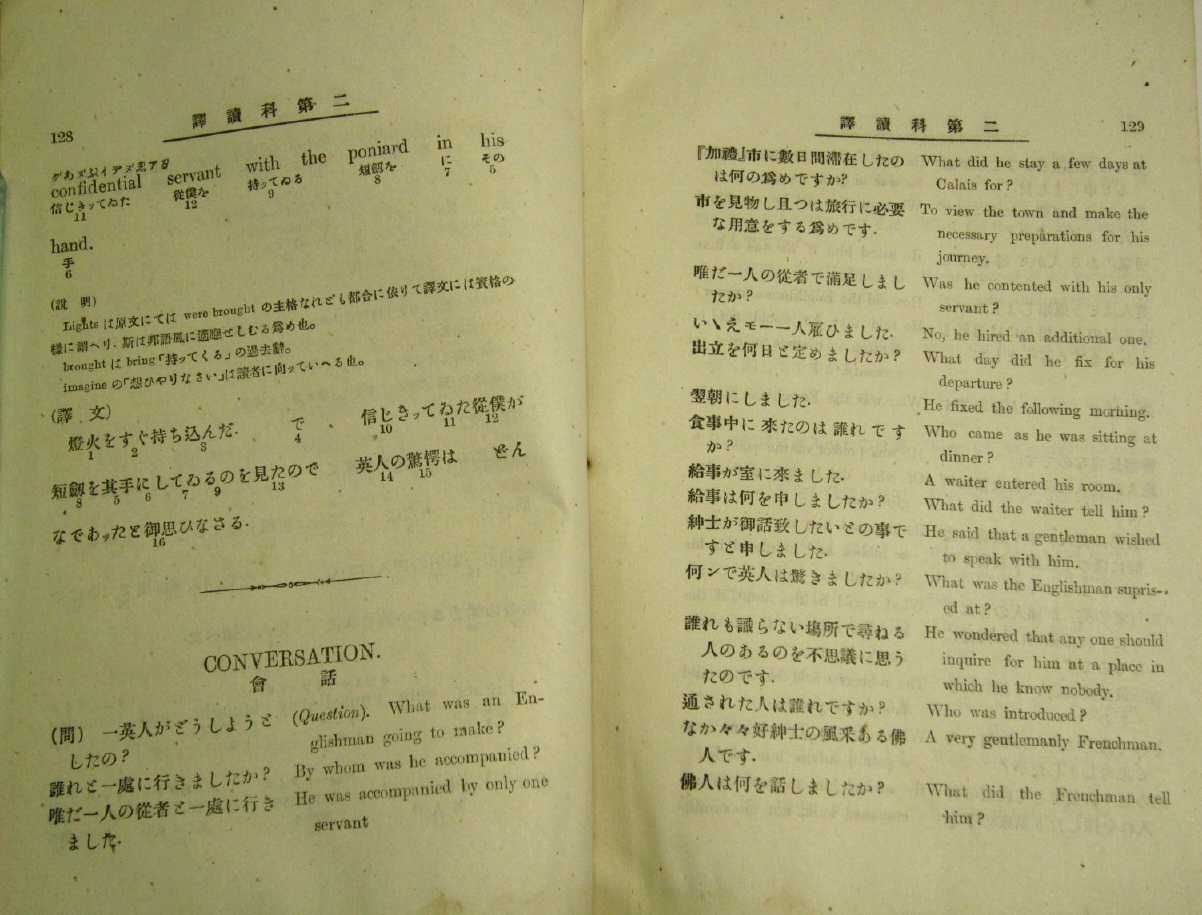 128
譯讀科第二
confidential servant with the poniard in his
信じきッてゐた 從僕を 持ッてゐる 短劔を に その
11 12 9 8 7 5
hand.
手
6
(說明)
Lights は原文にては were brought の主格なれども都合に依りて譯文には賓格の
樣に謂へり、斯は邦語風に適應せしむる爲め也。
brought は bring「持ッてくる」の過去動。
imagine の「想ひやりなさい」は讀者に向ッていへる也。
(譯文)
燈火をすぐ持ち込んだ. で 信じきッてゐた從僕が
1 2 3 4 10 11 12
短劔を其手にしてゐるのを見たので 英人の驚愕は せん
8 5 6 7 9 13 14 15
なであッたと御思ひなさる.
16
CONVERSATION.
會話
(問) 一英人がどうしようと
したの?
誰れと一處に行きましたか?
唯だ一人の從者と一處に行き
ました.
(Question). What was an En-
glishman going to make?
By whom was he accompanied?
He was accompanied by only one
servant
譯讀科第二
129
『加禮』市に數日間滯在したの
は何の爲めですか?
市を見物し且つは旅行に必要
な用意をする爲めです.
唯だ一人の從者で滿足しまし
たか?
いゝえモー一人雇ひました.
出立を何日と定めましたか?
翌朝にしました.
食事中に來たのは誰れです
か?
給事が室に來ました.
給事は何を申しましたか?
紳士が御話致したいとの事で
すと申しました.
何ンで英人は驚きましたか?
誰れも識らない塲所で尋ねる
人のあるのを不思議に思う
たのです.
通された人は誰れですか?
なか々々好紳士の風采ある佛
人です.
佛人は何を話しましたか?
What did he stay a few days at
Calais for?
To view the town and make the
necessary preparations for his
journey.
Was he contented with his only
servant?
No, he hired an additional one.
What day did he fix for his
departure?
He fixed the following morning.
Who came as he was sitting at
dinner?
A waiter entered his room.
What did the waiter tell him?
He said that a gentleman wished
to speak with him.
What was the Englishman supris-
ed at?
He wondered that any one should
inquire for him at a place in
which he know nobody.
Who was introduced?
A very gentlemanly Frenchman.
What did the Frenchman tell
him?